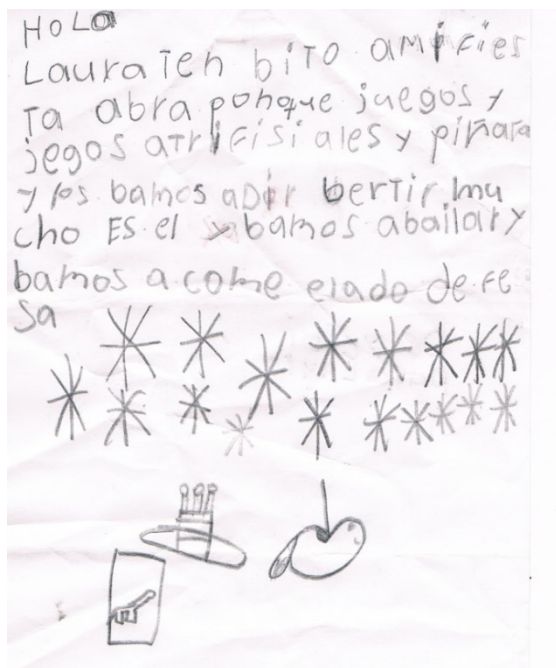 Hola
Laura Teh bito amifies
Ta abra ponque juegos y
jegos atrifisiales y piñata
y los bamos adir bertir mu
cho ES el y bamos abailar y
bamos a come elado de fe
sa